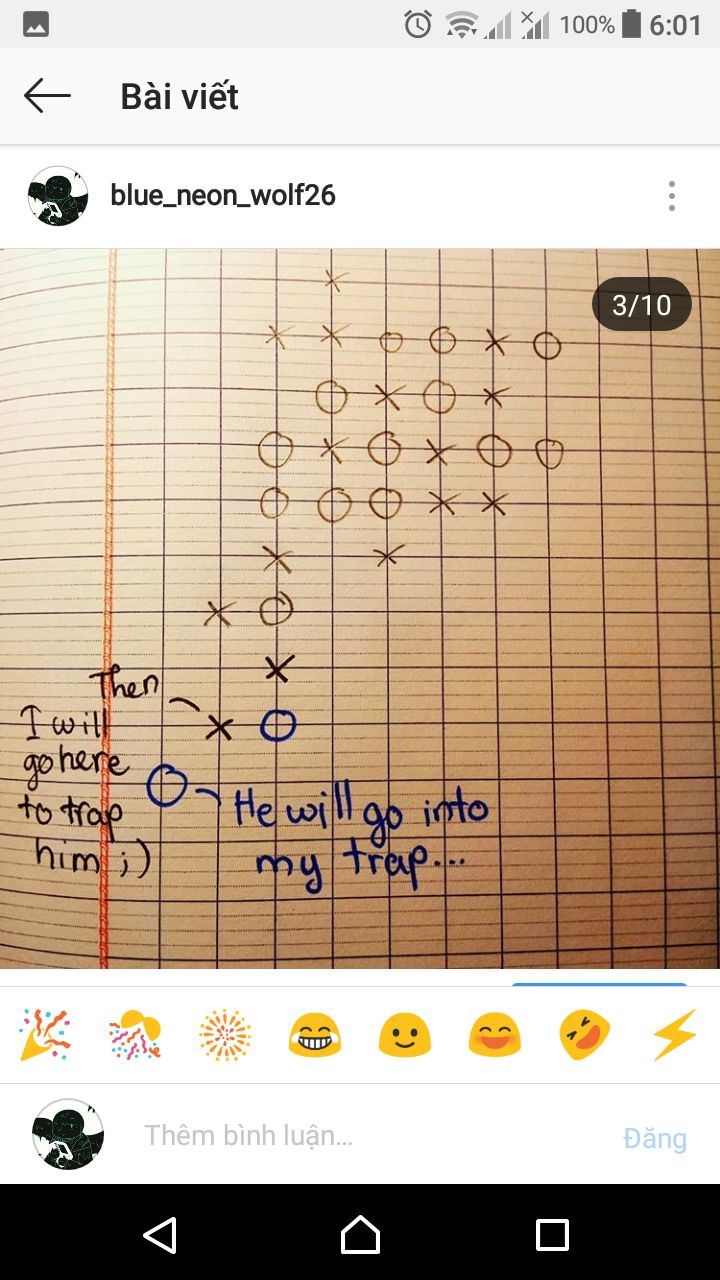 100% 6:01
Bài viết
blue_neon_wolf26
3/10
Then
I will
go here
to trap
him ;)
He will go into
my trap...
Thêm bình luận...
Đăng